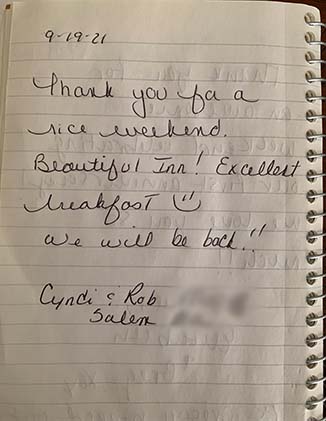 9-19-21
Thank you for a
nice weekend.
Beautiful Inn! Excellent
breakfast ☺
We will be back!!
Cyndi & Rob
Salem